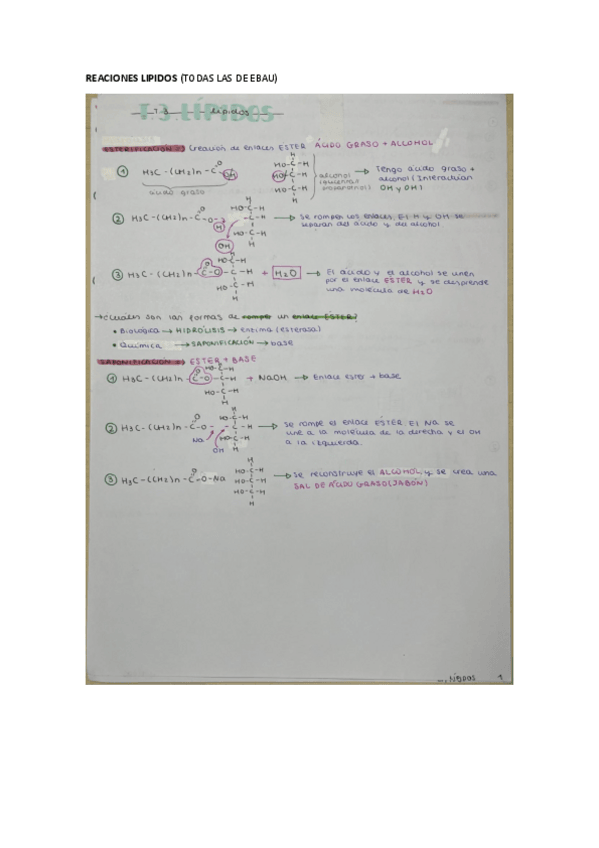 REACIONES LIPIDOS (TODAS LAS DE EBAU)
T.3 LÍPIDOS
T.3 Lípidos
ESTERIFICACIÓN → Creación de enlaces ESTER ÁCIDO GRASO + ALCOHOL
① H3C - (CH2)n - C OH
ácido graso
HO-C-H
HO-C-H
HO-C-H
alcohol
→ Tengo ácido graso + alcohol (Interactúan OH y OH)
② H3C - (CH2)n - C O- H
HO-C-H
-C-H
HO-C-H
OH
→ Se rompen los enlaces. El H y OH se separan del ácido y del alcohol
③ H3C - (CH2)n - C-O- C-H + H2O
HO-C-H
HO-C-H
→ El ácido y el alcohol se unen
por el enlace ESTER y se desprende
una molécula de H2O
→ cuales son las formas de romper un enlace ESTER?
• Biológica → HIDRÓLISIS → enzima (esterasa)
• Química → SAPONIFICACIÓN → base
SAPONIFICACIÓN → ESTER + BASE
① H3C - (CH2)n C-O- C-H + NaOH → Enlace ester + base
HO-C-H
HO-C-H
② H3C - (CH2)n - C-O- -C-H
HO-C-H
HO-C-H
Na
OH
→ Se rompe el enlace ÉSTER. El Na se
une a la molécula de la derecha y el OH
a la izquierda.
③ H3C - (CH2)n - C-O-Na
HO-C-H
HO-C-H
HO-C-H
→ se reconstruye el ALCOHOL y se crea una
SAL DE ÁCIDO GRASO (JABÓN)
1